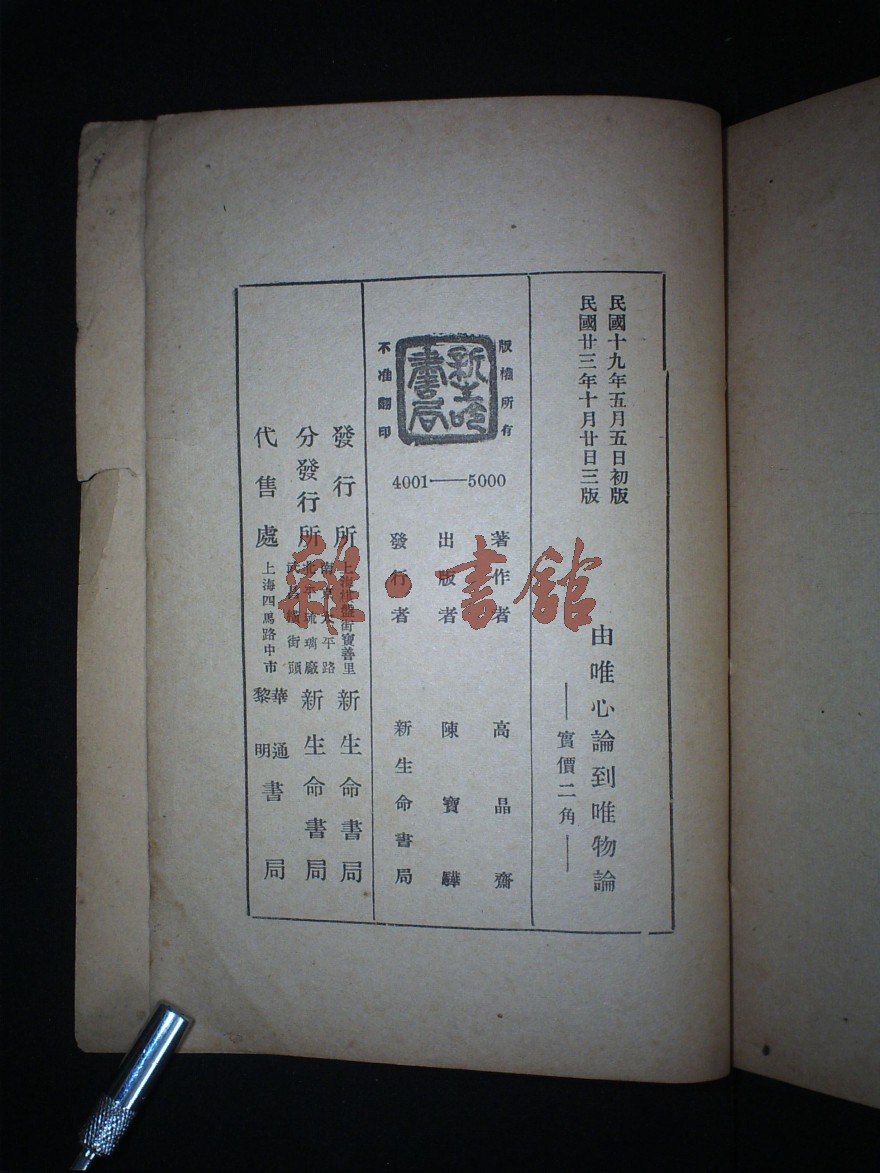 民國十九年五月五日初版
民國廿三年十月廿日三版
由唯心論到唯物論
——實價二角——
版權所有
新生命書局
不准翻印
4001——5000
著作者 高晶齋
出版者 陳寶驊
發行者 新生命書局
發行所 上海棋盤街寶善里 新生命書局
分發行所 南京太平路 北平琉璃廠 武昌橫街頭 新生命書局
代售處 上海四馬路中市 華通 黎明 書局
雜·書館